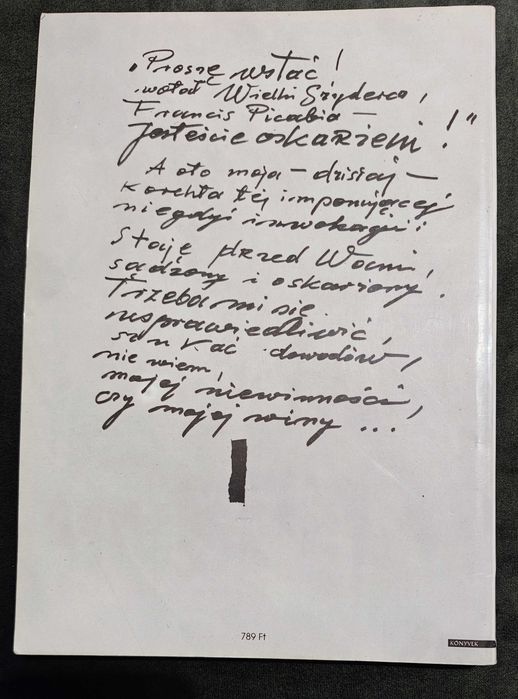 „Proszę wstać!
wołał Wielki Szyderca,
Francis Picabia –
Jesteście oskarżeni!"
A oto moja – dzisiaj –
korekta tej imponującej
niegdyś inwokacji:
Staję przed Wami,
sądzony i oskarżony.
Trzeba mi się
usprawiedliwić,
szukać dowodów,
nie wiem,
mojej niewinności,
czy mojej winy ...
789 Ft
KÖNYVEK